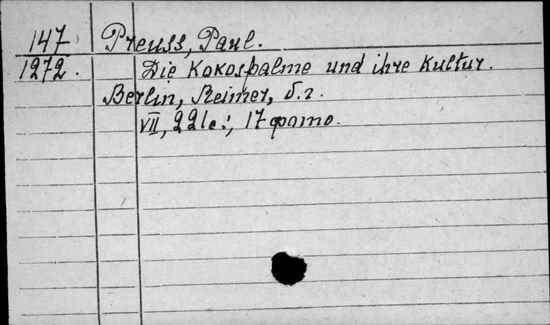 147 Preuss, Paul.
1272. Die Kokospalme und ihre Kultur.
Berlin, Reimer, б.г.
VII, 221с.; 17 фото.